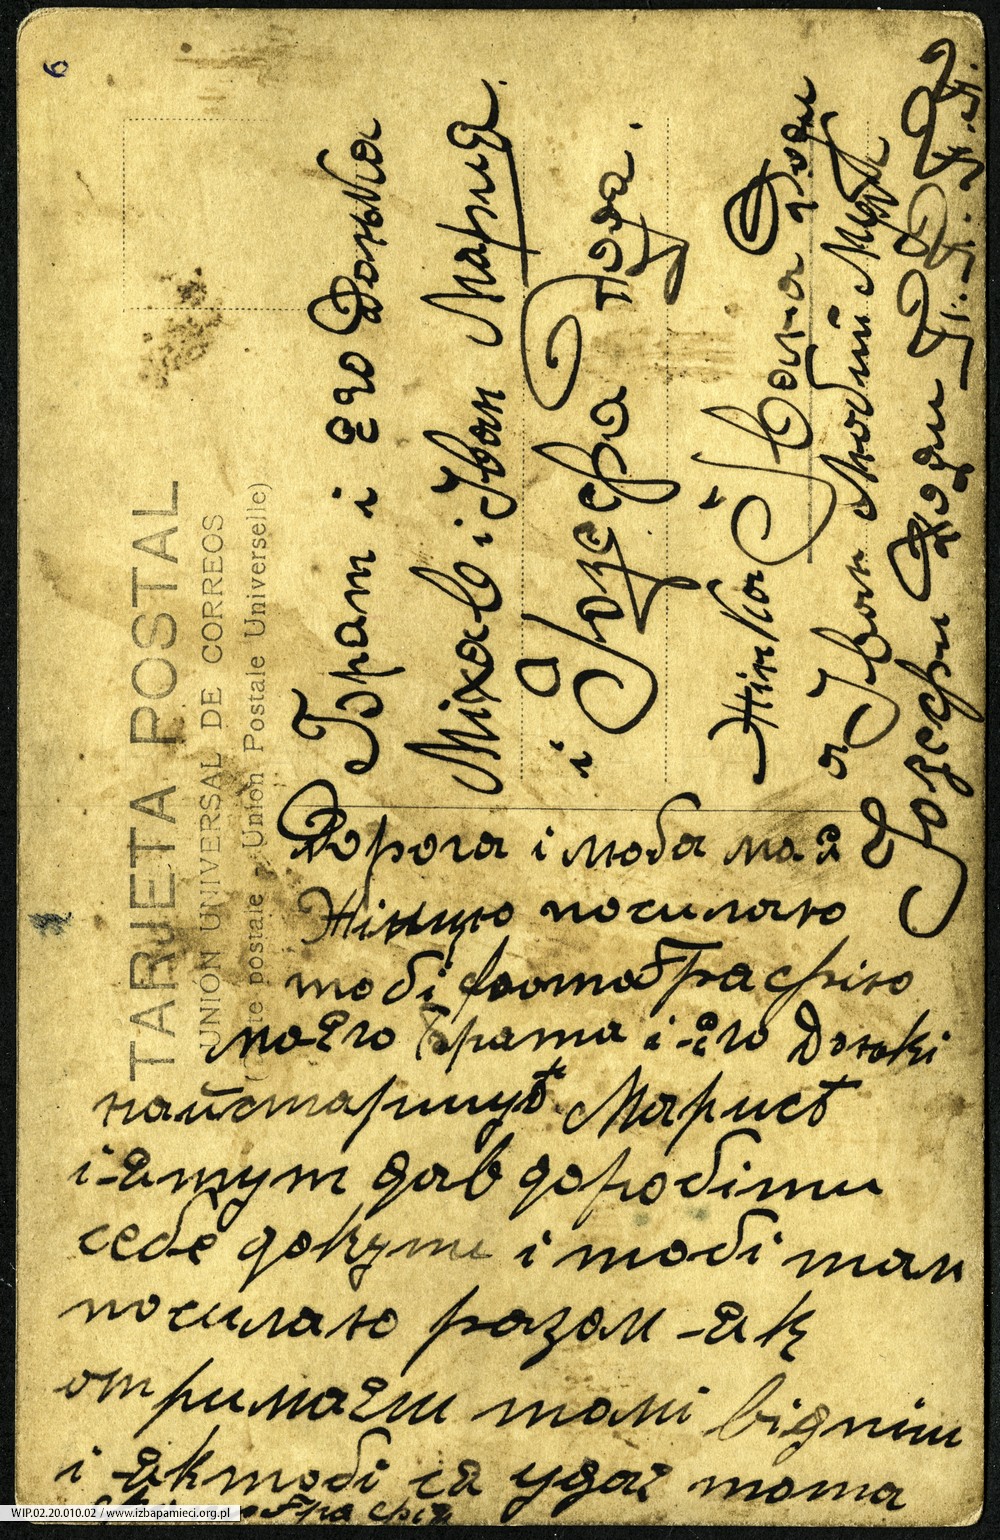 6
TARJETA POSTAL
UNIÓN UNIVERSAL DE CORREOS
postale Unión Postale Universelle)
Брат і єго Донька
Міхавь і Іван Мария.
і а Іозефа Года.
Жінка і Ивана Годи
а Іван
Іозефи Годи
Дорога і люба моя
Жінцю посилаю
тобі фотоґрафію
моєго брата і єго Доньки
найстаршуѣ Марисѣ
і я тут дав доробіти
себе докупи і тобі там
посилаю разом як
отримаєш томі відпіш
і як тобі ся удає тота
фотоґрафія
WIP.02.20.010.02 / www.izbapamieci.org.pl